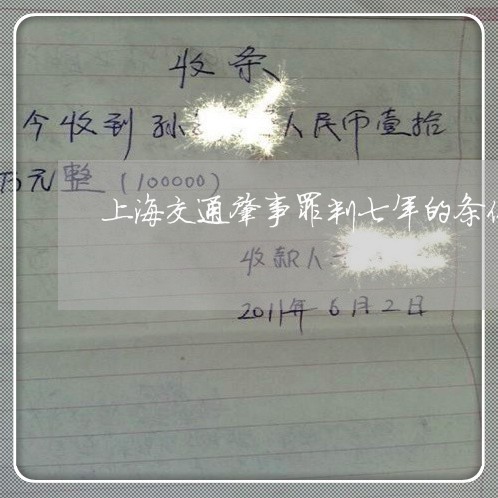 收条
今收到孙 人民币壹拾
万元整（100000）
上海交通肇事罪判七年的条
收款人
2011年6月2日